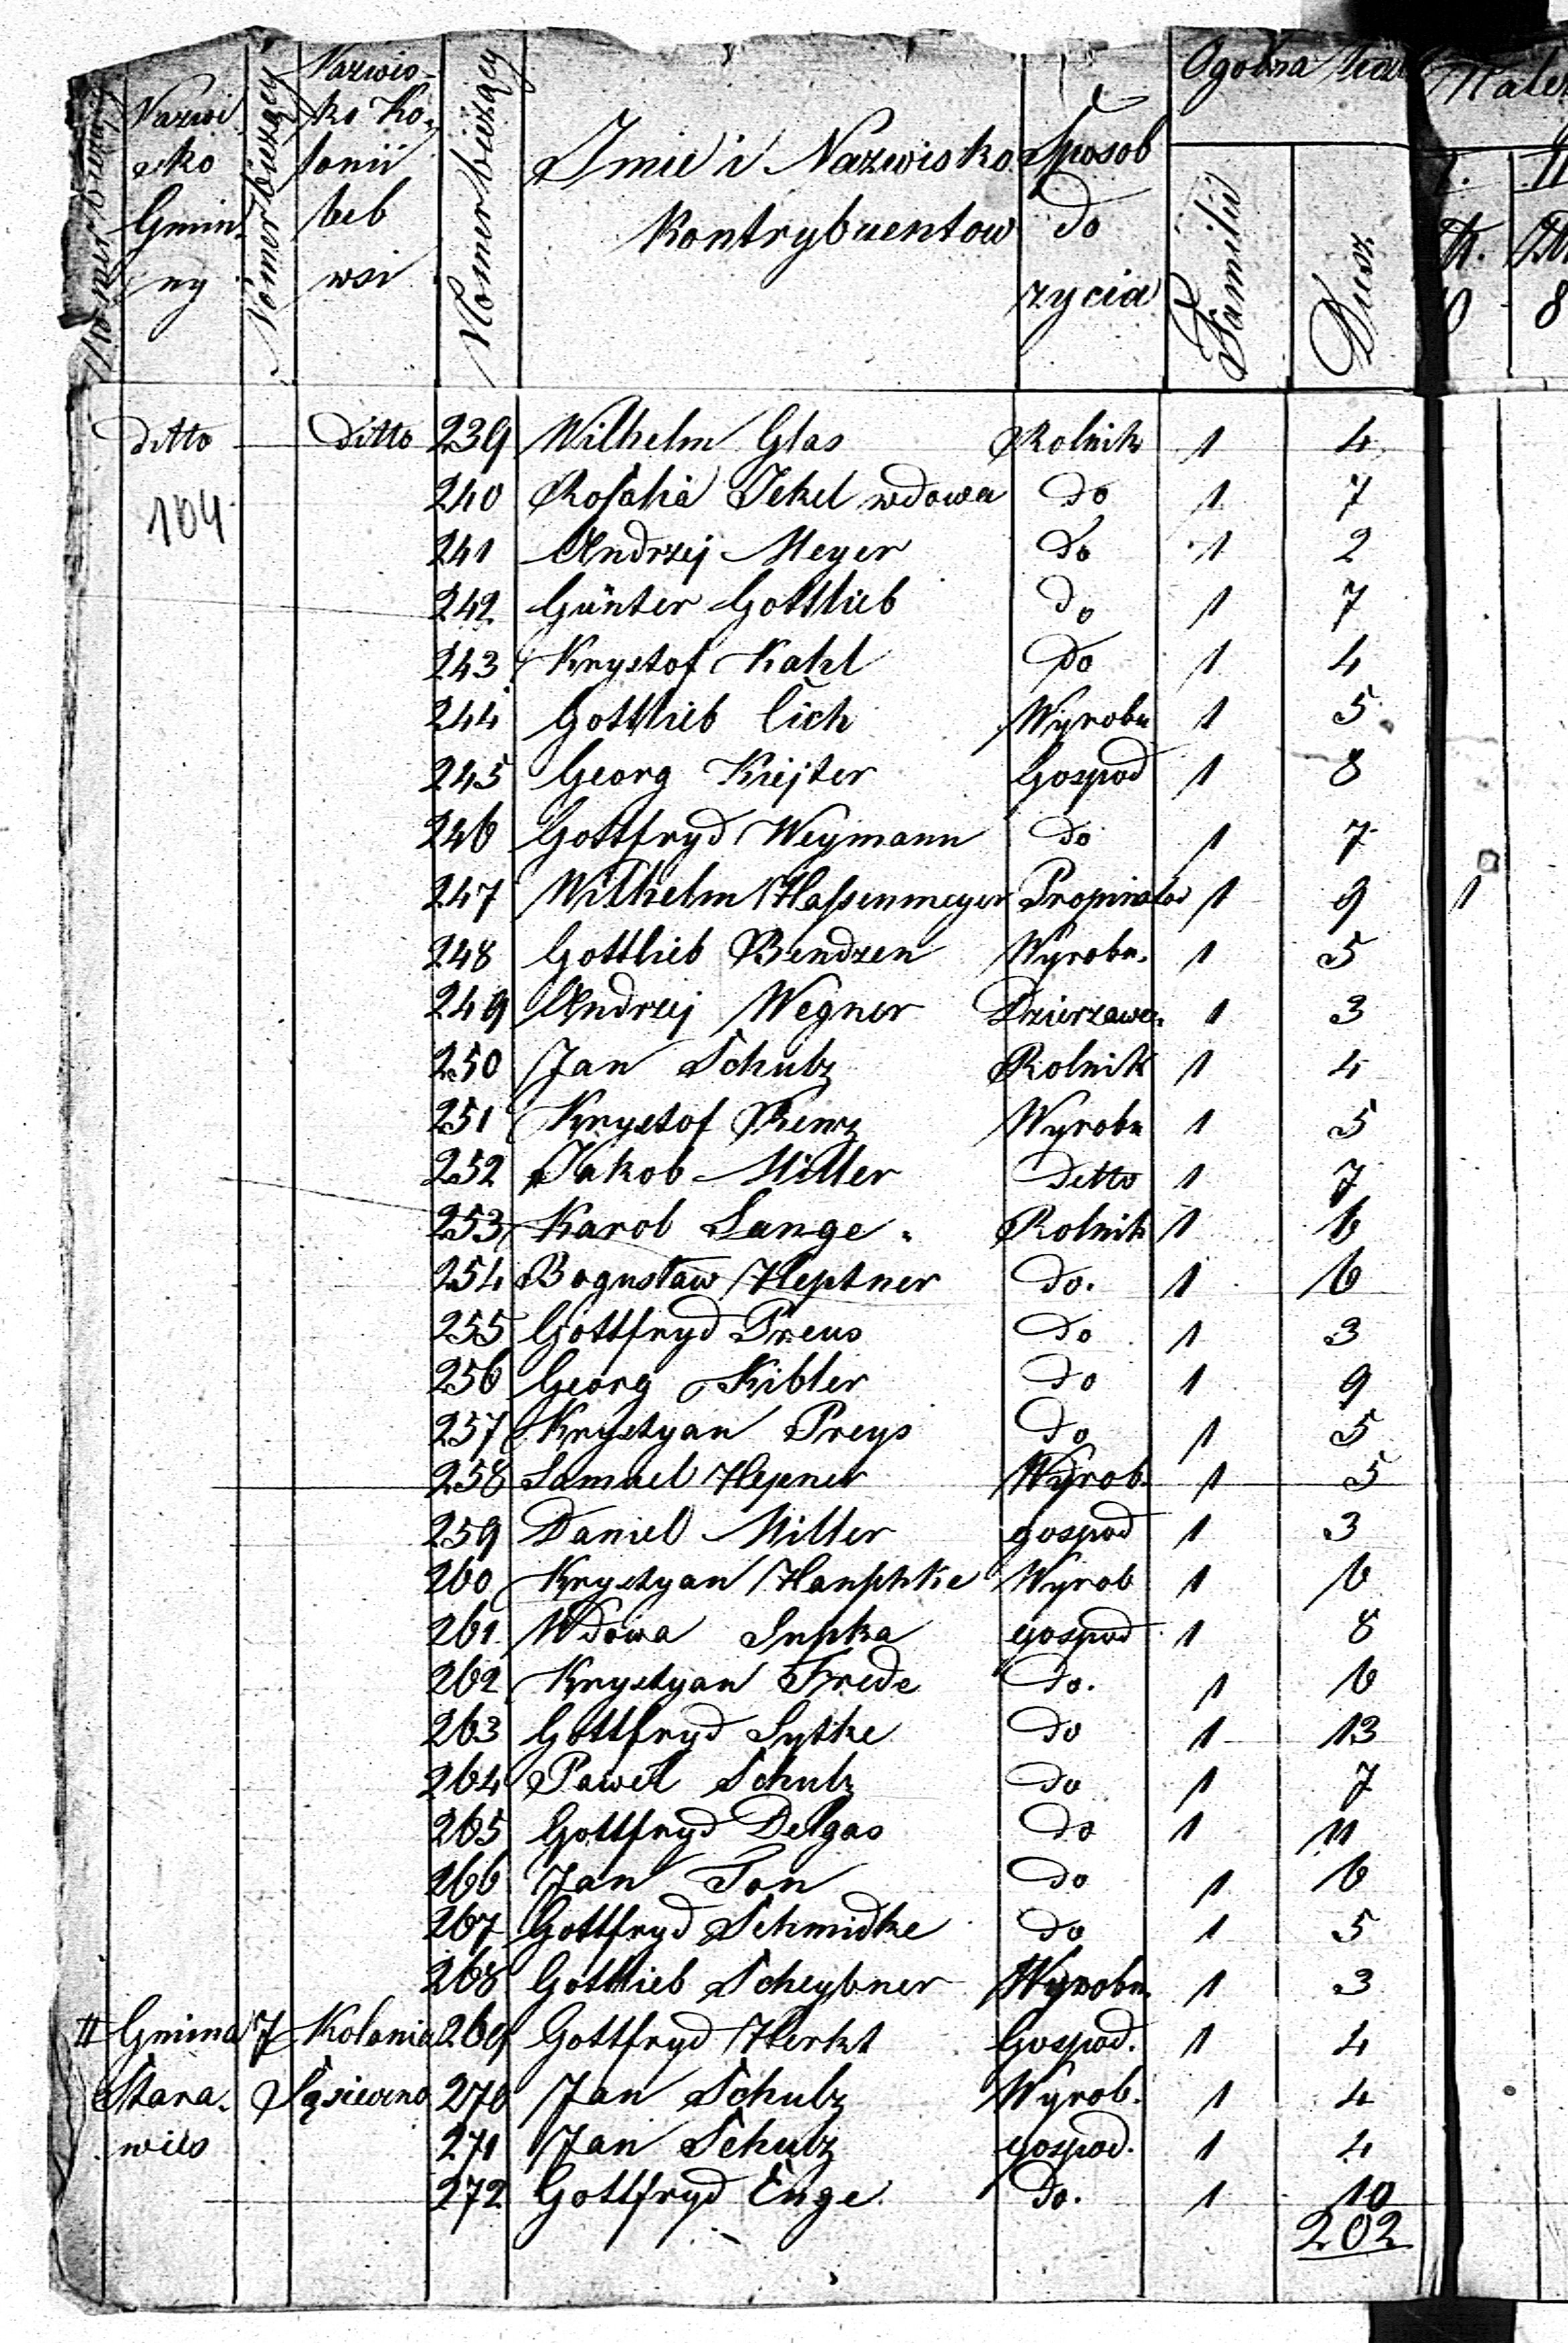 Nomer bieżący
Nazwi-
sko
Gmin-
ny
Nomer bieżący
Nazwis-
ko Ko-
lonii
lub
wsi
Nomer bieżący
Imie i Nazwisko
Kontrybuentow
Sposob
do
zycia
Ogolna
Familii
Dusz
ditto ditto 239 Wilhelm Glas Rolnik 1 4
104
240 Rosalia Jekel wdowa do 1 7
241 Andrzej Meyer do 1 2
242 Günter Gottlieb do 1 7
243 Krystof Kahl do 1 4
244 Gottlieb Cich Wyrobn 1 5
245 Georg Kiejter Gospod 1 8
246 Gottfryd Weymann do 1 7
247 Wilhelm Hassenmeyer Propinator 1 9 1
248 Gottlieb Bendzen Wyrobn. 1 5
249 Andrzej Wegner Dzierzawc. 1 3
250 Jan Schulz Rolnik 1 4
251 Krystof Renz Wyrobn 1 5
252 Jakob Miller ditto 1 7
253 Karol Lange Rolnik 1 6
254 Bogusław Heptner do. 1 6
255 Gottfryd Preus do 1 3
256 Georg Kibler do 1 9
257 Krystyan Preys do 1 5
258 Samuel Hepner Wyrob. 1 5
259 Daniel Miller gospod 1 3
260 Krystyan Hanphke Wyrob 1 6
261 Wdowa Lupka gospod 1 8
262 Krystyan Frede do. 1 6
263 Gottfryd Lytke do 1 13
264 Paweł Schulz do 1 7
265 Gottfryd Delgas do 1 11
266 Jan Ton do 1 6
267 Gottfryd Schmidke do 1 5
268 Gottlieb Scheybner Wyrobn. 1 3
II Gmina 7 Kolonia 269 Gottfryd Herkt Gospod. 1 4
Stara- Sąsieczno 270 Jan Schulz Wyrob. 1 4
wies 271 Jan Schulz gospod. 1 4
272 Gottfryd Enge do. 1 10
202